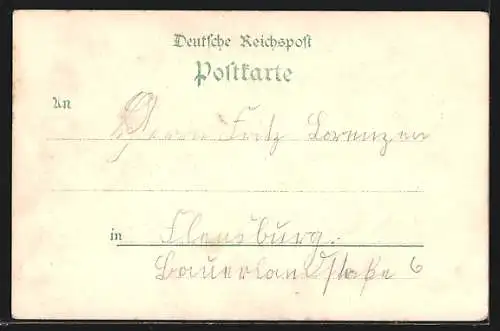 Deutsche Reichspost
Postkarte
An
Herrn Fritz Lorenzen
in Flensburg.
Bauerlandstraße 6